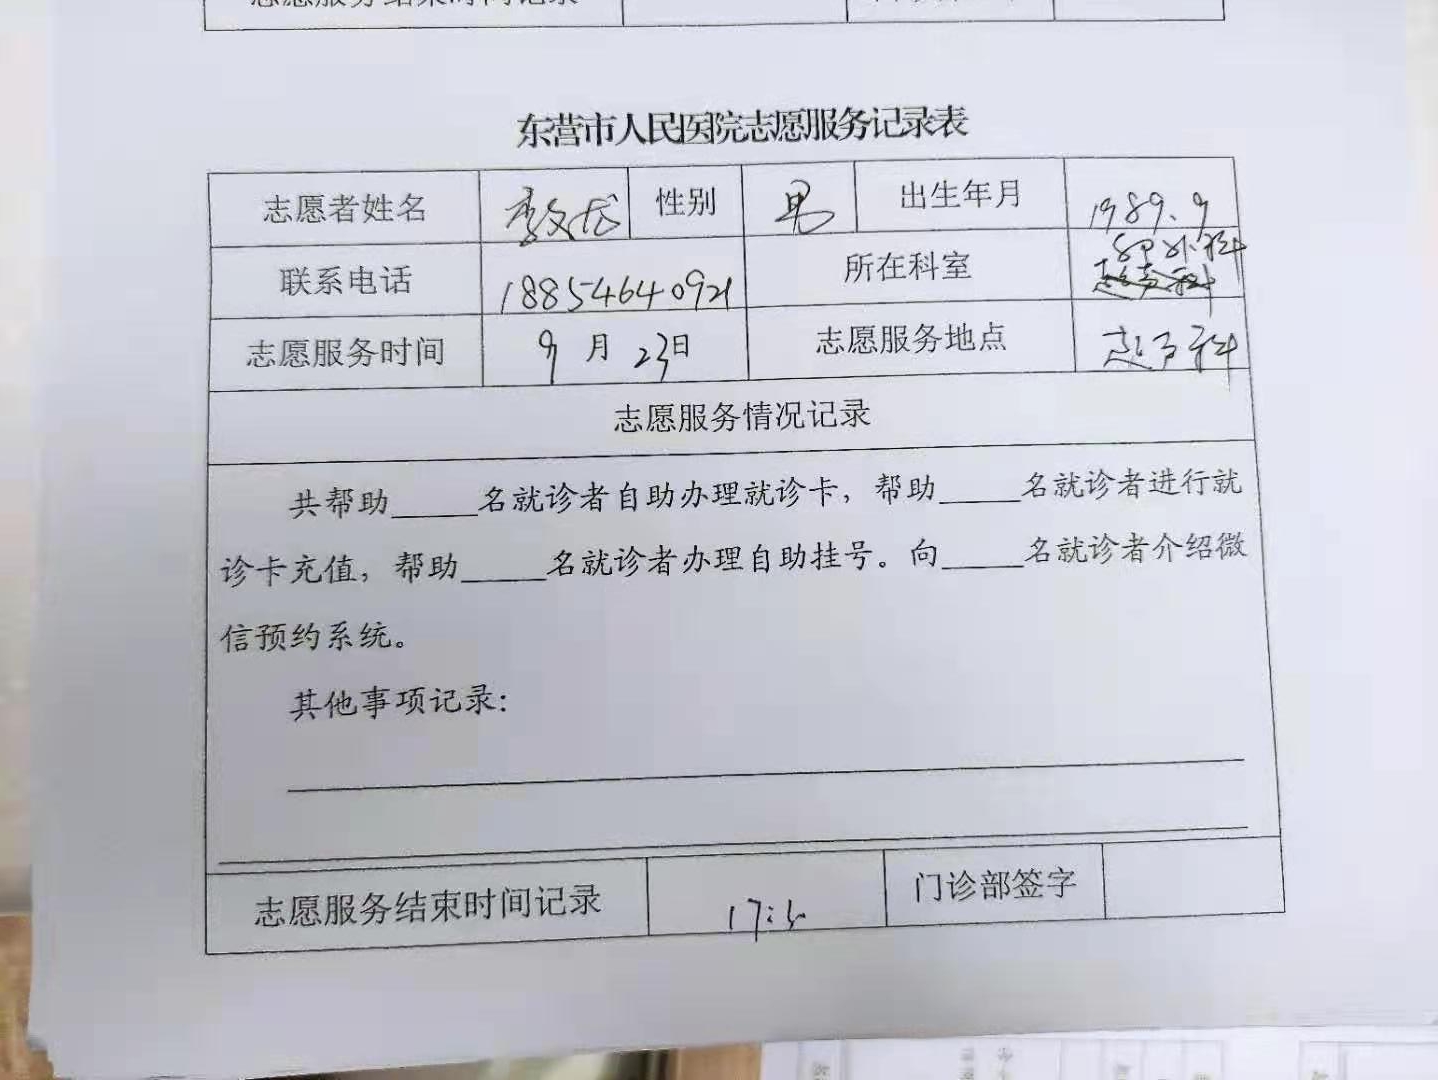 志愿服务结束时间记录
东营市人民医院志愿服务记录表
志愿者姓名 李文龙 性别 男 出生年月 1989.9
联系电话 18854640921 所在科室 外科
志愿服务时间 9月23日 志愿服务地点 科
志愿服务情况记录
共帮助_____名就诊者自助办理就诊卡，帮助_____名就诊者进行就
诊卡充值，帮助_____名就诊者办理自助挂号。向_____名就诊者介绍微
信预约系统。
其他事项记录：
志愿服务结束时间记录 17: 门诊部签字